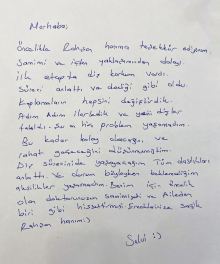 Merhaba;
Öncelikle Rahşan hanıma teşekkür ediyorum.
Samimi ve içten yaklaşımından dolayı.
İlk etapta diş korkum vardı.
Süreci anlattı ve dediği gibi oldu.
Kaplamaların hepsini değiştirdik.
Adım Adım ilerledik ve yeni dişler
takıldı. Şu an hiç problem yaşamadım.
Bu kadar kolay olacağını, ve
rahat geçeceğini düşünmemiştim.
Diş sürecinde yaşayacağım Tüm
anlattı. Ve durum böyleyken beklemediğim
aksilikler yaşamadım. Benim için önemli
olan doktorunuzun samimiyeti ve Aileden
biri gibi hissettirmesi Emeklerinize Sağlık
Rahşan hanım:)
:)